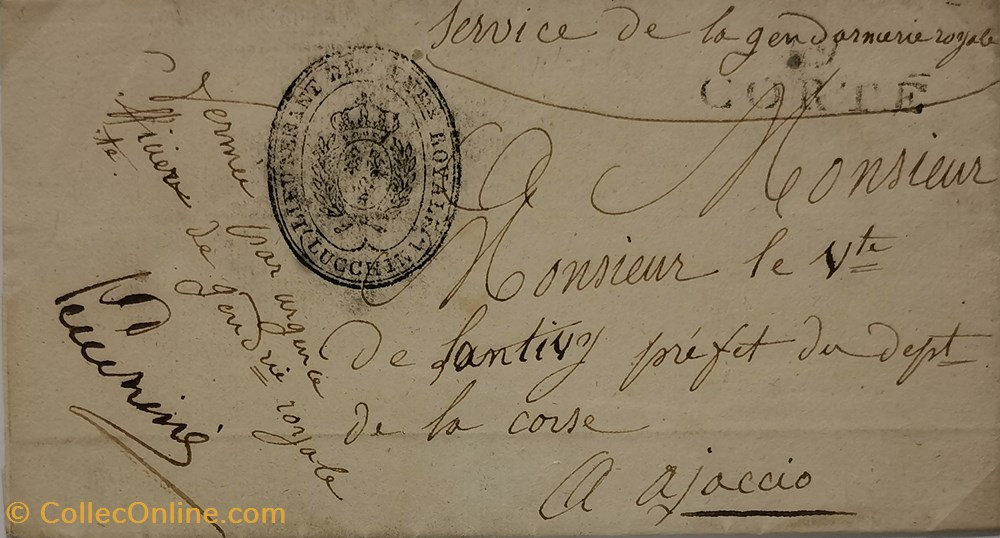 Service de la gendarmerie royale
CORTÉ
LIEUTENANT DE ARMES ROYALE
LUCCHINI
A Monsieur
Monsieur le Vte
de Santivy préfet du dept
de la corse
A ajaccio
fermée par urgence
officier de gendrie royale
Lte.
© CollecOnline.com